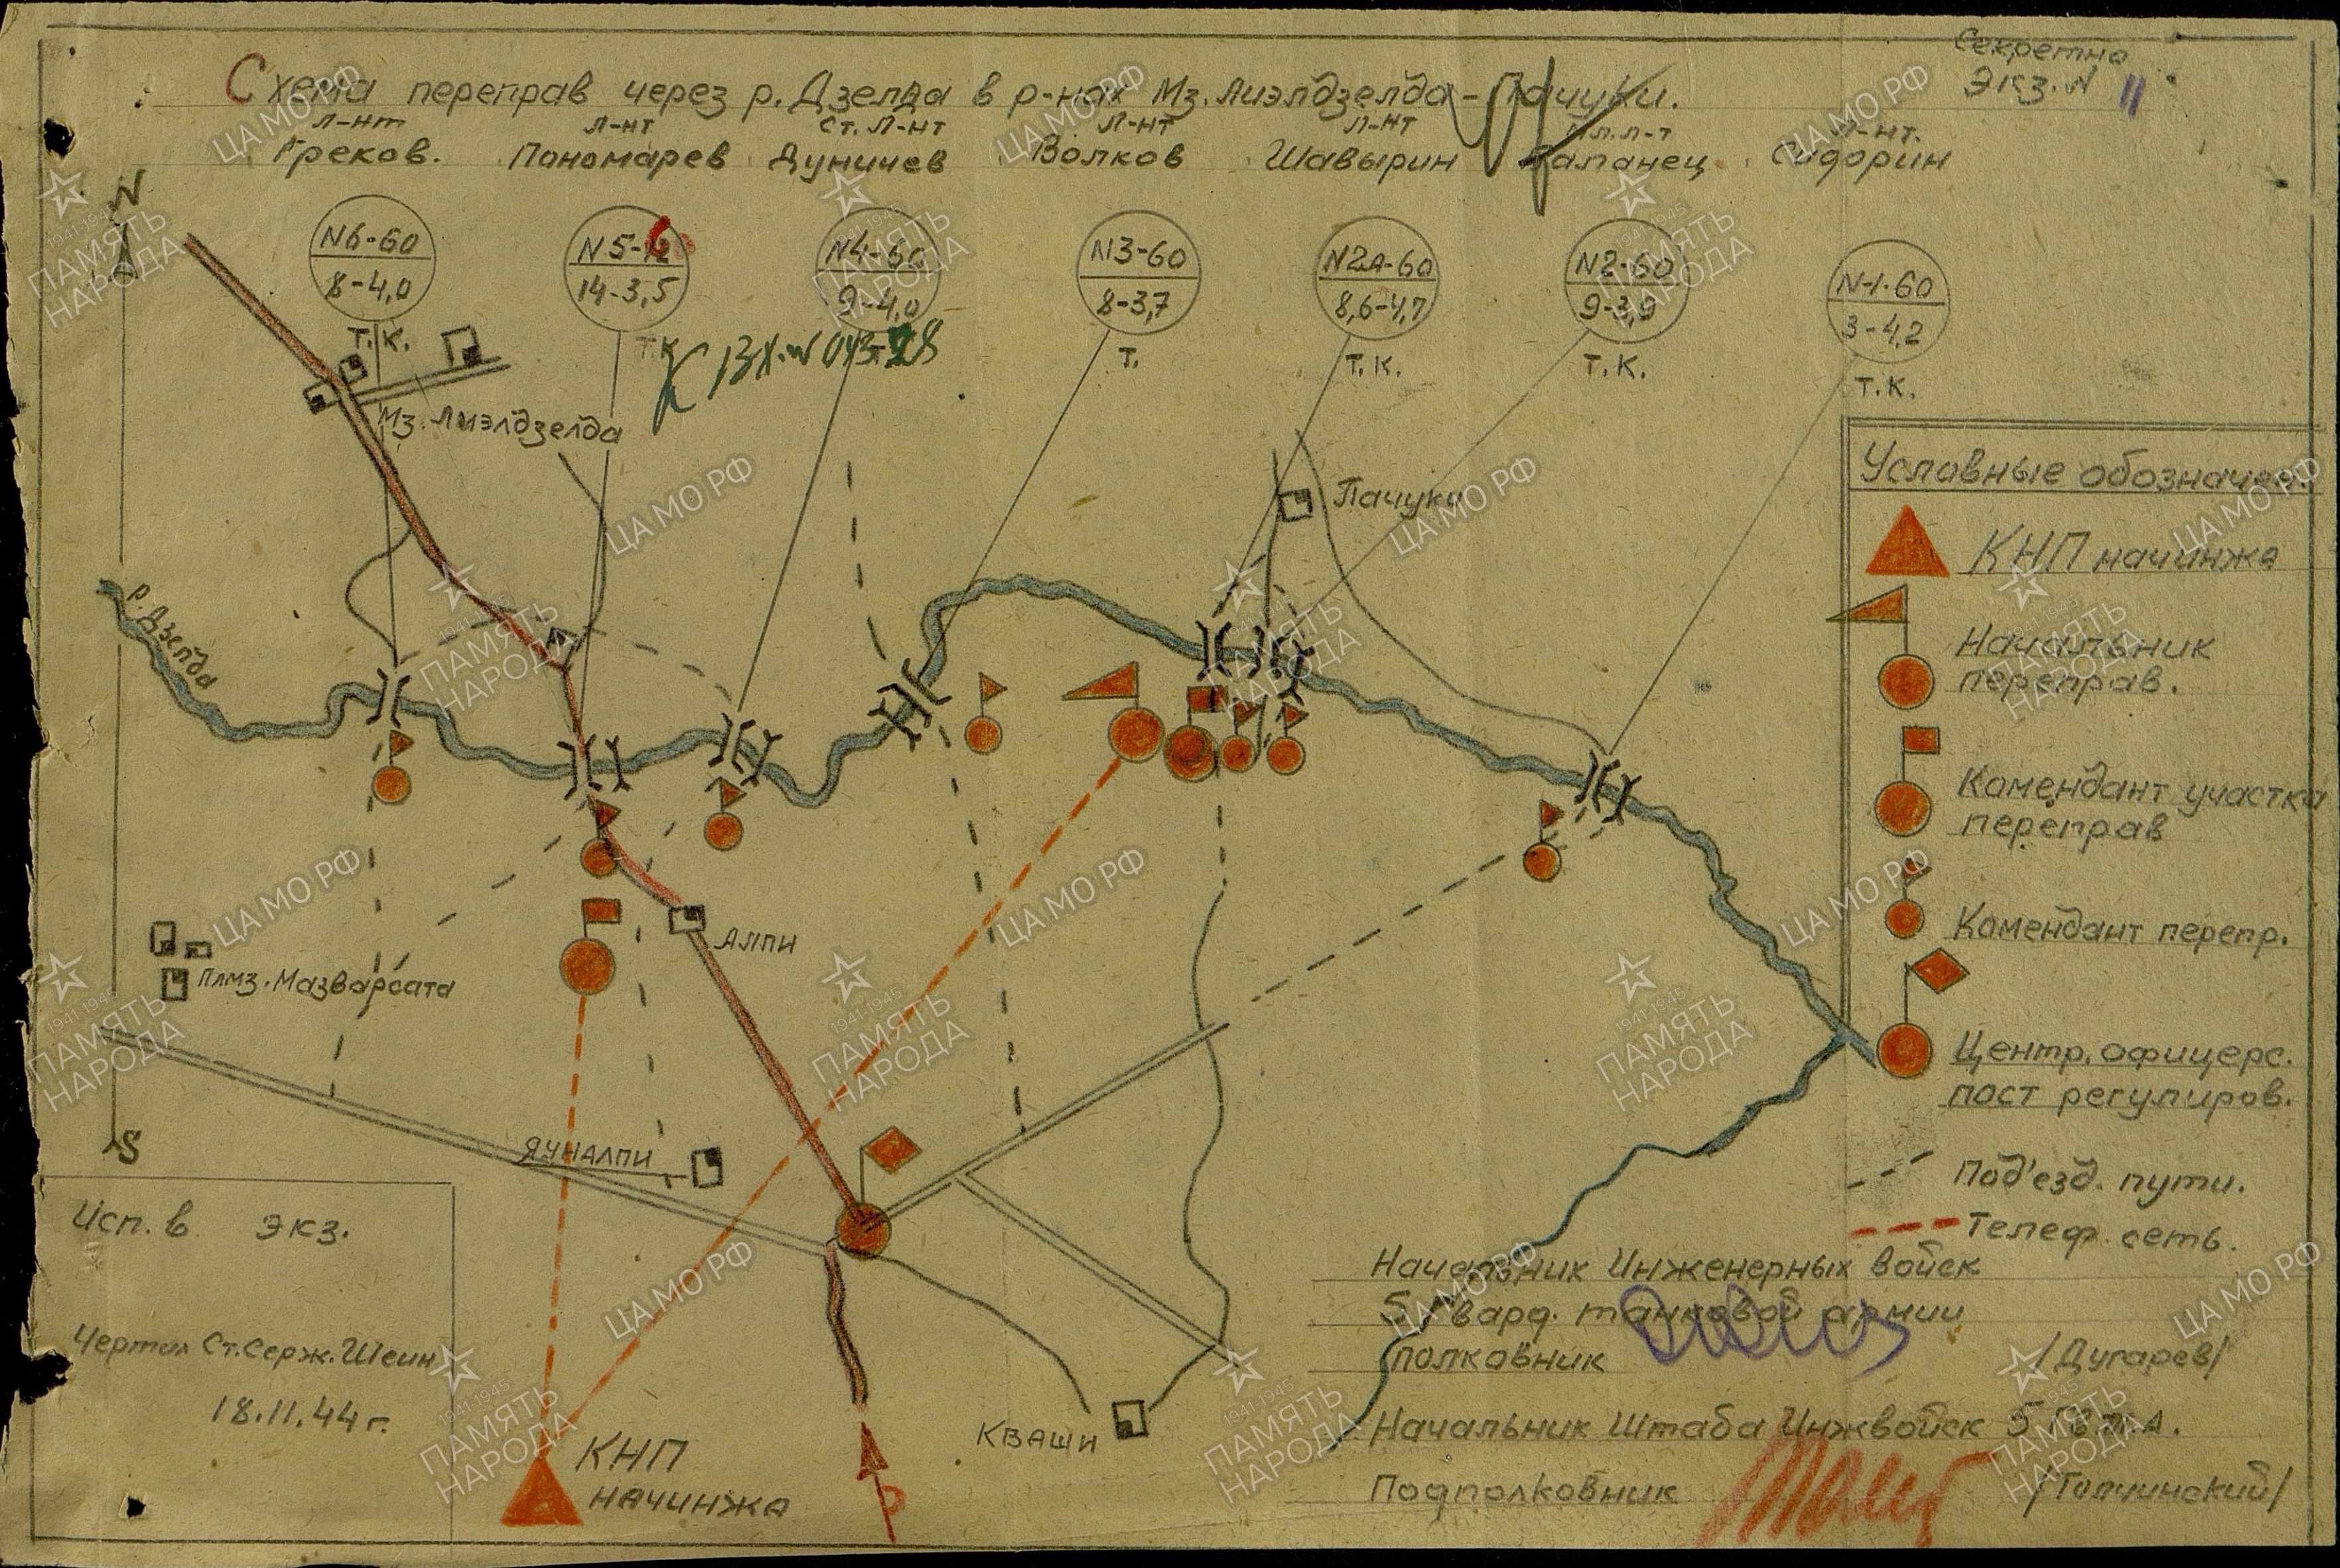 Секретно
Экз. N 11
Схема переправ через р. Дзелда в р-нах Мз. Лиэлдзелда - Пачуки.
л-нт л-нт ст. л-нт л-нт л-нт мл. л-т л-нт.
Греков. Пономарев Дуничев Волков Шавырин Сидорин
N
N6-60
8-4,0
Т.К.
N5-
14-3,5
Т.К.
N4-60
9-4,0
N3-60
8-3,7
Т.
N2А-60
8,6-4,7
Т.К.
N2-60
9-3,9
Т.К.
N-1-60
3-4,2
Т.К.
Мз. Лиэлдзелда
Пачуки
р. Дзелда
Алпи
плмз. Мазварсата
Яуналпи
Кваши
S
КНП
начинжа
Условные обозначен.
КНП начинжа
Начальник
переправ.
Комендант участка
переправ
Комендант перепр.
Центр. офицерс.
пост регулиров.
Под'езд. пути.
Телеф. сеть.
Исп. в экз.
Чертил Ст. Серж. Шеин
18.11.44 г.
Начальник Инженерных войск
5 Гвард. танковой армии
полковник /Дугарев/
Начальник Штаба Инжвойск 5 Гв.Т.А.
Подполковник /Толчинский/
ЦАМО РФ
ПАМЯТЬ
НАРОДА
1941-1945